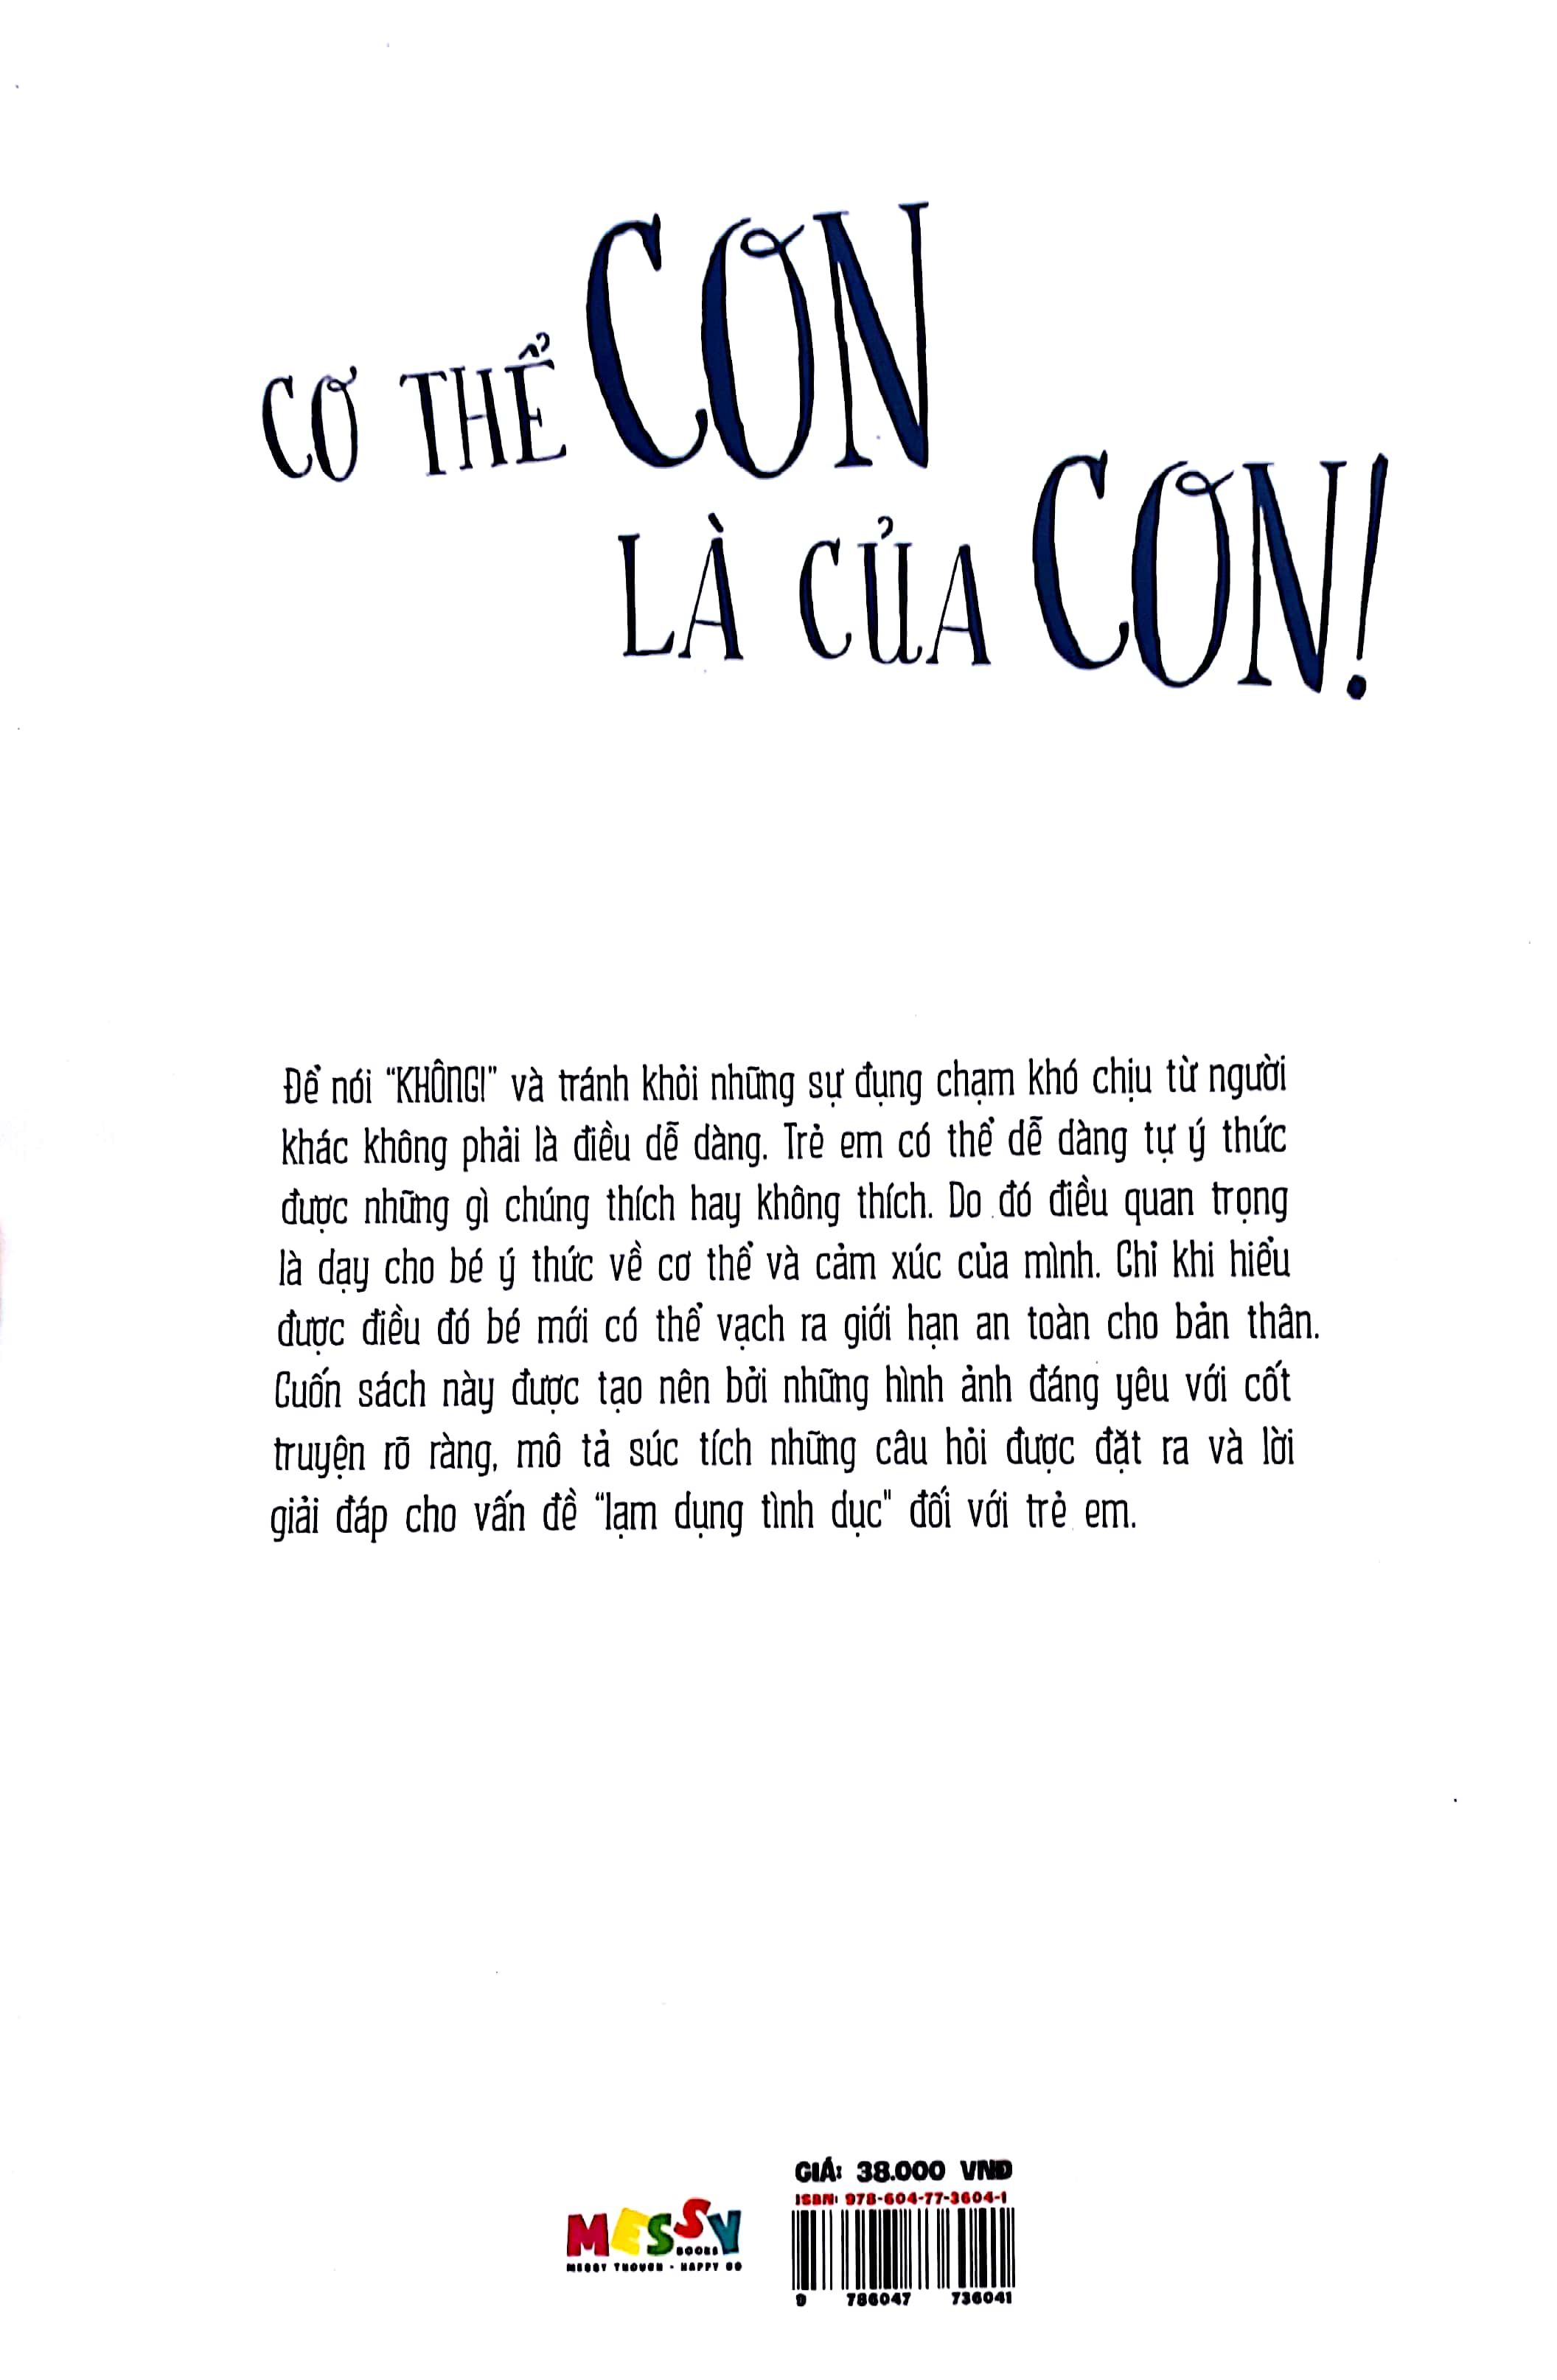 CƠ THỂ CON
LÀ CỦA CON!
Để nói “KHÔNG!” và tránh khỏi những sự đụng chạm khó chịu từ người
khác không phải là điều dễ dàng. Trẻ em có thể dễ dàng tự ý thức
được những gì chúng thích hay không thích. Do đó điều quan trọng
là dạy cho bé ý thức về cơ thể và cảm xúc của mình. Chỉ khi hiểu
được điều đó bé mới có thể vạch ra giới hạn an toàn cho bản thân.
Cuốn sách này được tạo nên bởi những hình ảnh đáng yêu với cốt
truyện rõ ràng, mô tả súc tích những câu hỏi được đặt ra và lời
giải đáp cho vấn đề “lạm dụng tình dục" đối với trẻ em.
GIÁ: 38.000 VNĐ
ISBN: 978-604-77-3604-1
MESSY
BOOKS
MESSY THOUGH - HAPPY GO
9 786047 736041